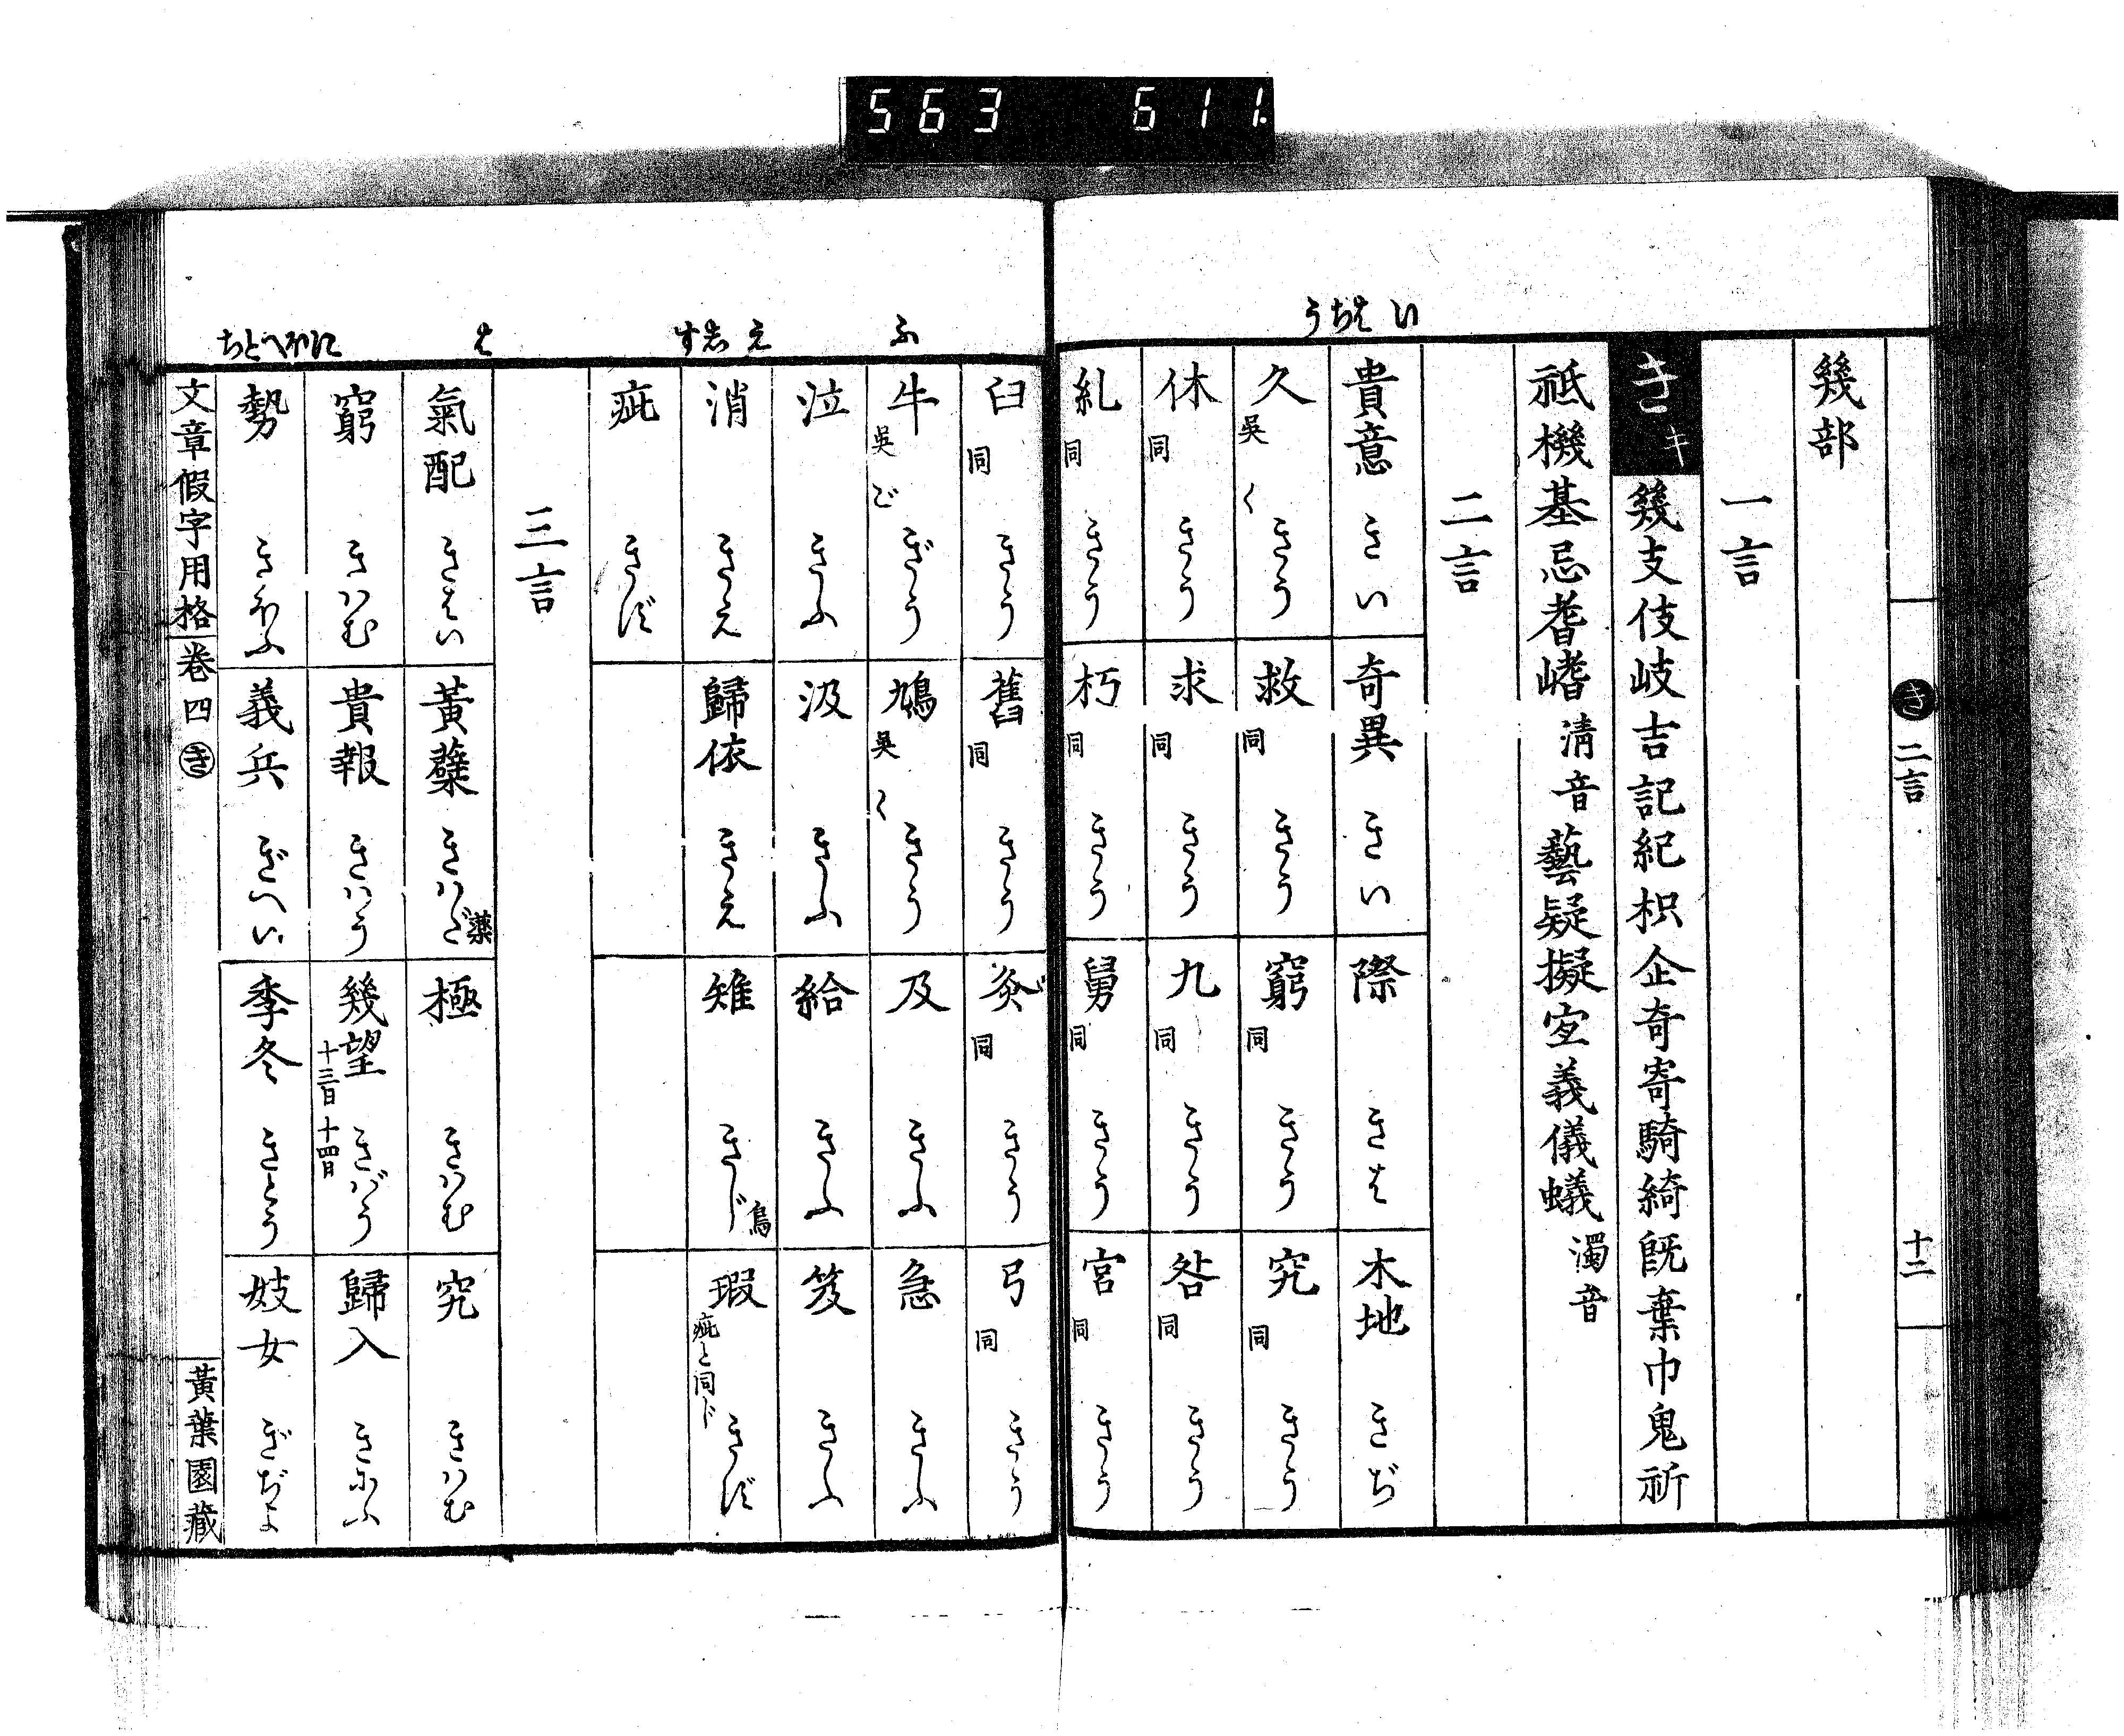 563 611.
いはちう
き 二言 十二
幾部
一言
きキ 幾支伎岐吉記紀枳企奇寄騎綺既棄巾鬼祈
祗機基忌耆嗜 清音 藝疑擬宜義儀蟻 濁音
二言
貴意 きい 奇異 きい 際 きは 木地 きぢ
久 呉く きう 救 同 きう 窮 同 きう 究 同 きう
休 同 きう 求 同 きう 九 同 きう 咎 同 きう
糺 同 きう 朽 同 きう 舅 同 きう 宮 同 きう
ふ え しす は にほへとち
臼 同 きう 舊 同 きう 灸 同 きう 弓 同 きう
牛 呉ご ぎう 鳩 呉く きう 及 きふ 急 きふ
泣 きふ 汲 きふ 給 きふ 笈 きふ
消 きえ 歸依 きえ 雉 きじ 鳥 瑕 疵と同じ きず
疵 きず
三言
氣配 きはい 黃蘗 きハだ 藥 極 きハむ 究 きハむ
窮 きハむ 貴報 きハう 幾望 十三日十四日 きバう 歸入 きにふ
勢 きほふ 義兵 ぎへい 季冬 きとう 妓女 ぎぢよ
文章假字用格 卷四 き 黃葉園藏